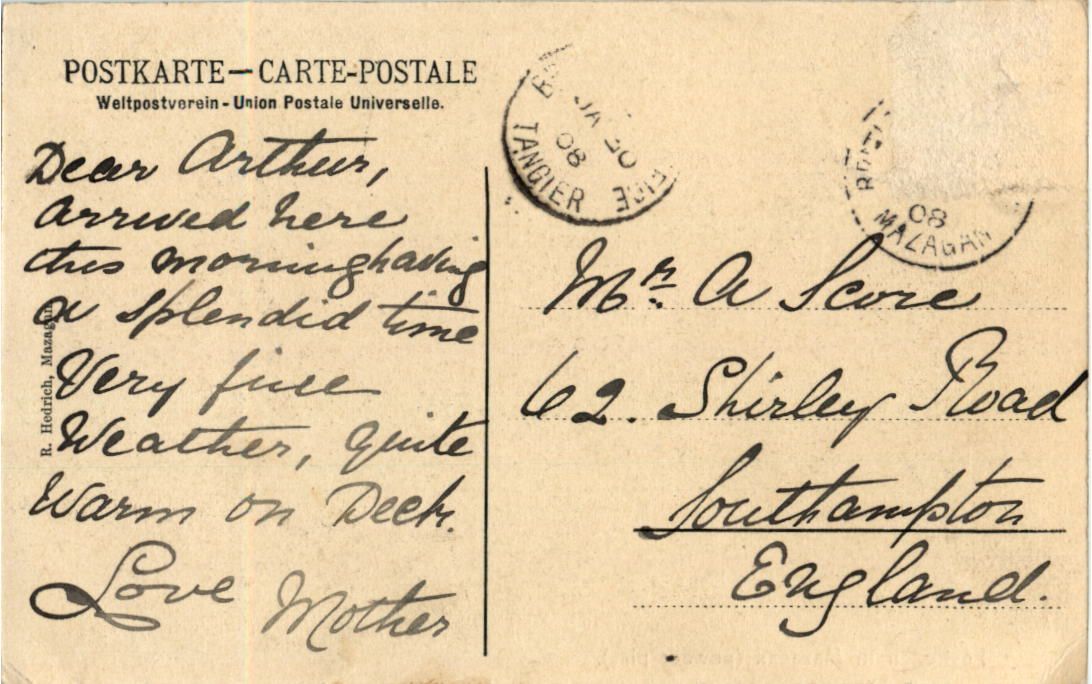 POSTKARTE — CARTE-POSTALE
Weltpostverein - Union Postale Universelle.
Dear Arthur,
Arrived here
this morning having
a splendid time
Very fine
Weather, quite
Warm on Deck.
Love Mother
R. Hedrich, Mazagan
JA 30
08
TANGIER
08
MAZAGAN
Mr. A Score
62. Shirley Road
Southampton
England.